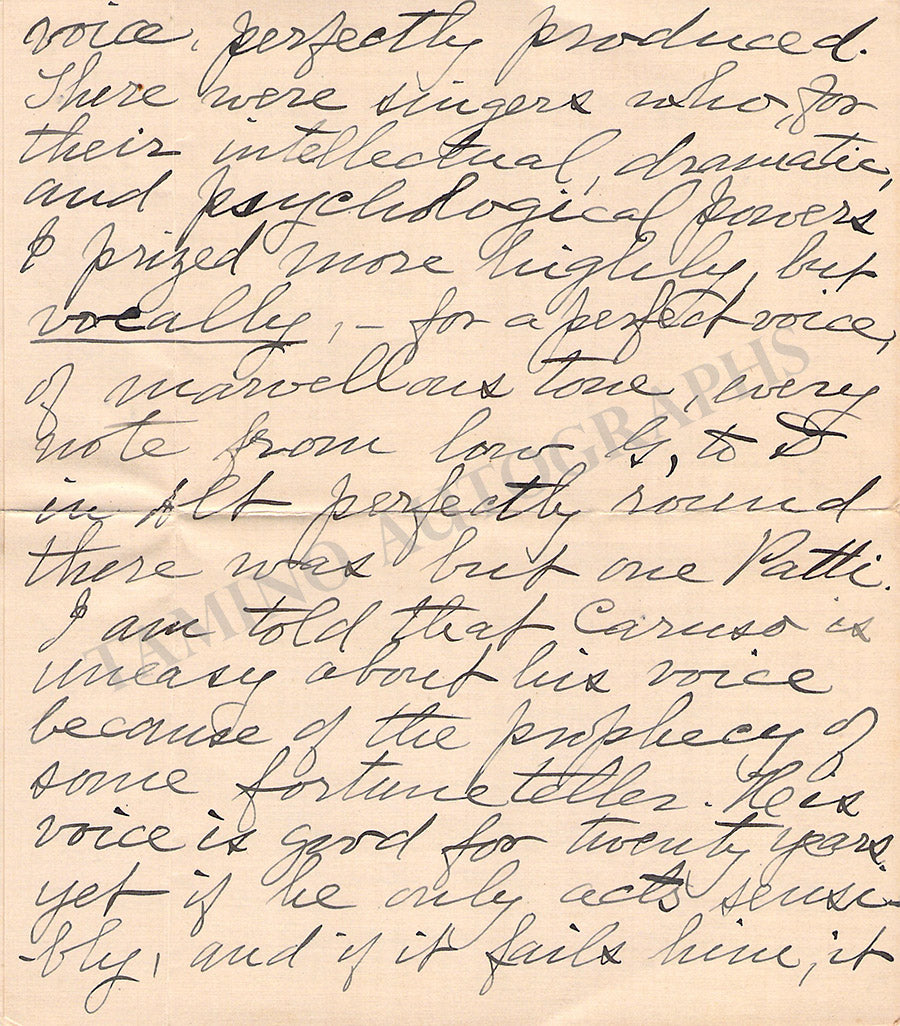 voice, perfectly produced.
There were singers who, for
their intellectual, dramatic,
and psychological powers
I prized more highly, but
vocally, – for a perfect voice,
of marvellous tone, every
note from low G, to D
in Alt perfectly round
there was but one Patti.
I am told that Caruso is
uneasy about his voice
because of the prophecy of
some fortune teller. He is
voice is good for twenty years
yet if he only acts sensi-
-bly, and if it fails him, it
TAMINO AUTOGRAPHS